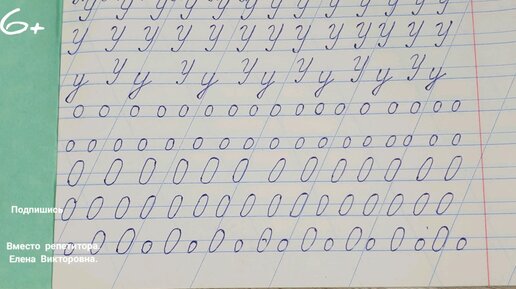 6+
У У У У У У У У У У У У У
у У у У у У у У у У у У у
о о о о о о о о о о о о о о о о о
о о о о о о о о о о о о о о о о о о
О О О О О О О О О О О О О
О О О О О О О О О О О О О О О О
Подпишись
О о О о О о О о О о О о О о О о О о
Вместо репетитора.
Елена Викторовна.